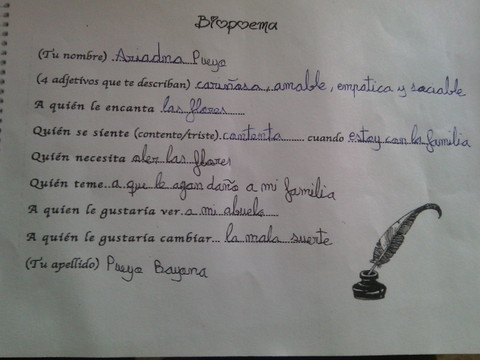 Biopoema
(Tu nombre) Ariadna Pueyo
(4 adjetivos que te describan) cariñosa, amable, empatica y sociable
A quién le encanta las flores
Quién se siente (contento/triste) contenta cuando estoy con la familia
Quién necesita oler las flores
Quién teme a que le agan daño a mi familia
A quien le gustaría ver a mi abuelo
A quién le gustaría cambiar... la mala suerte
(Tu apellido) Pueyo Bayona